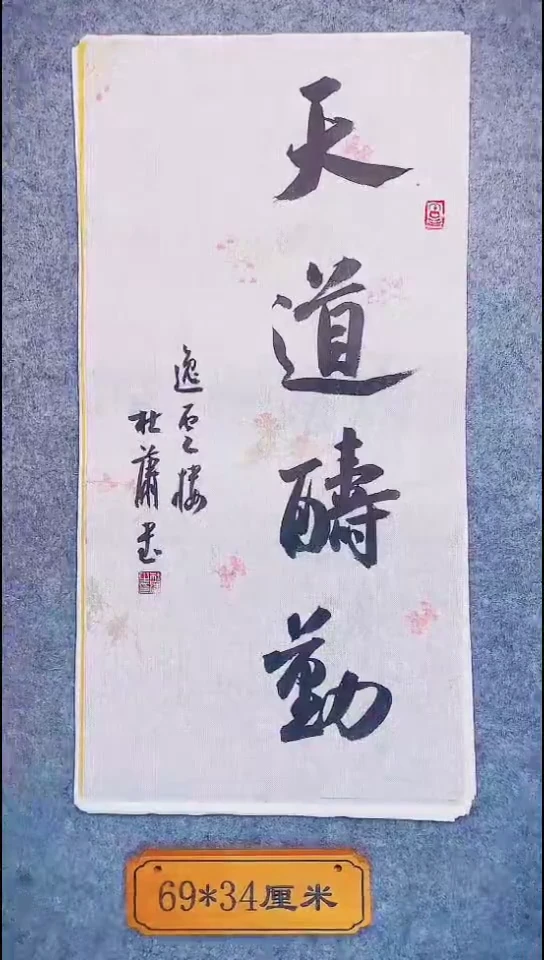 天道酬勤
逸雲楼
杜萧书
69*34厘米